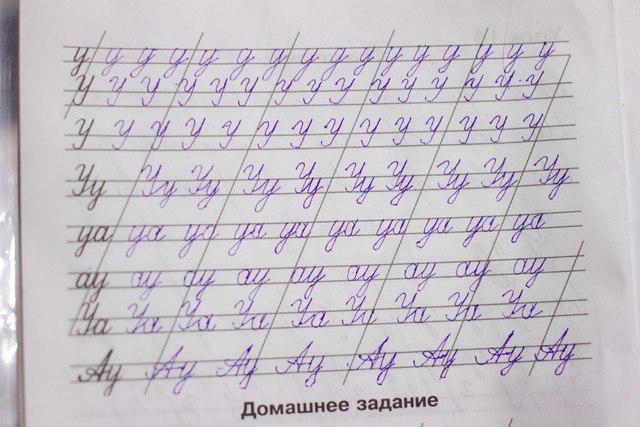 у у у у у у у у у у у у у у у у
у у у у у у у у у у у у у у у
у у у у у у у у у у у у у у
Уу Уу Уу Уу Уу Уу Уу Уу Уу Уу
уа уа уа уа уа уа уа уа уа уа
ау ау ау ау ау ау ау ау ау
Уа Уа Уа Уа Уа Уа Уа Уа Уа
Ау Ау Ау Ау Ау Ау Ау Ау
Домашнее задание